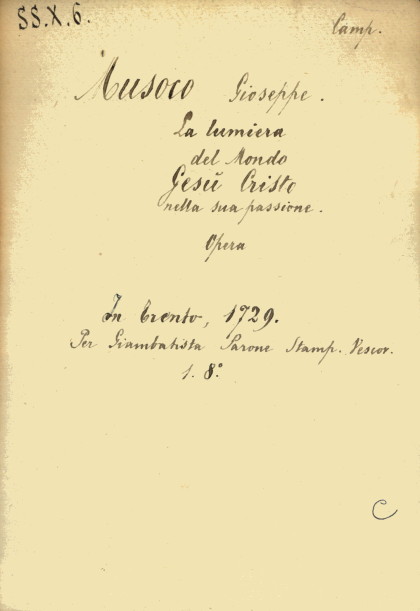 SS.X.6.
Camp.
Musoco Gioseppe.
La lumiera
del Mondo
Gesù Cristo
nella sua passione.
Opera
In Trento, 1729.
Per Giambatista Parone Stamp. Vescov.
1. 8°
C